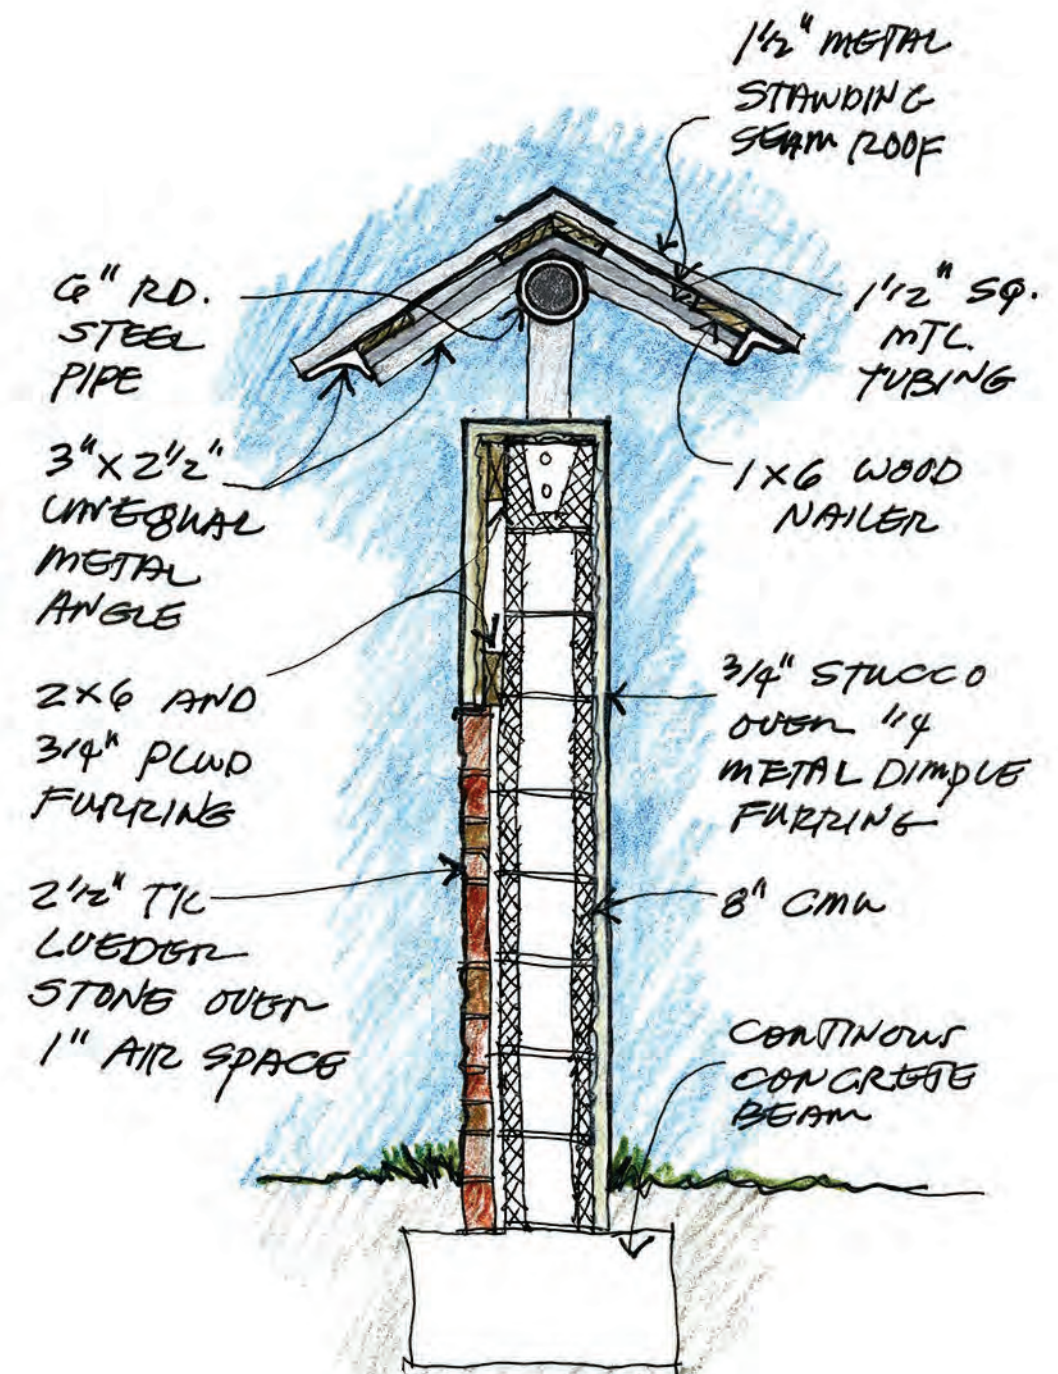 1 1/2" METAL
STANDING
SEAM ROOF
6" RD.
STEEL
PIPE
1 1/2" SQ.
MTL.
TUBING
3" X 2 1/2"
UNEQUAL
METAL
ANGLE
1 X 6 WOOD
NAILER
2 X 6 AND
3/4" PLWD
FURRING
3/4" STUCCO
OVER 1/4
METAL DIMPLE
FURRING
2 1/2" TK
LUEDER
STONE OVER
1" AIR SPACE
8" CMU
CONTINOUS
CONCRETE
BEAM